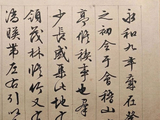 永和九年歲在癸
之初會于會稽山
亭脩禊事也羣
少長咸集此地
領茂林脩竹又
湍暎帶左右引以